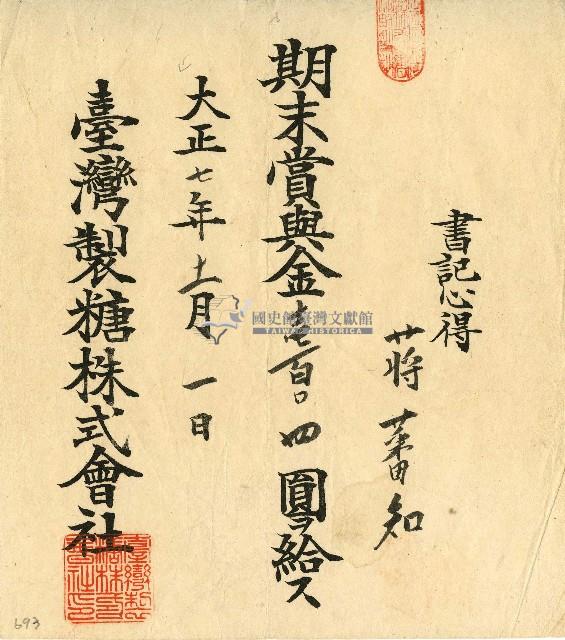 書記心得
蔣番知
期末賞與金壱百〇四圓ヲ給ス
大正七年十一月一日
臺灣製糖株式會社
臺灣製糖株式會社之印
國史館臺灣文獻館
TAIWAN HISTORICA
693